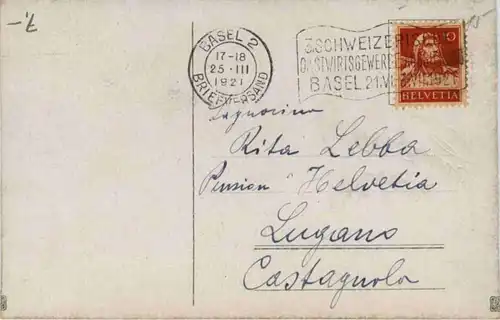 7,-
BASEL 2
17-18
25·III
1921
BRIEFVERSAND
3.SCHWEIZE
GASTWIRTSGEWERBE
BASEL 21.VI
10
HELVETIA
Signorina
Rita Lebba
Pension "Helvetia
Lugano
Castagnola